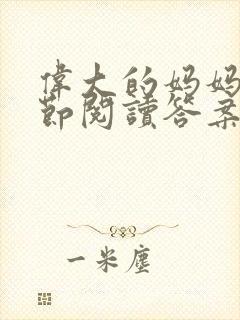 偉大的媽媽
節閱讀答案
一米塵